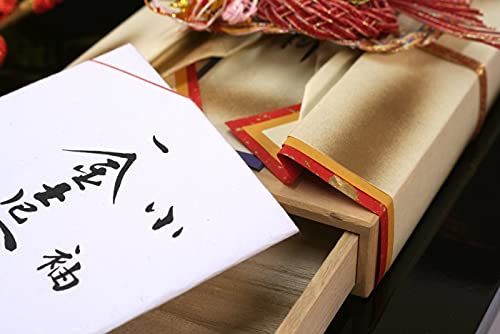 小袖
一金